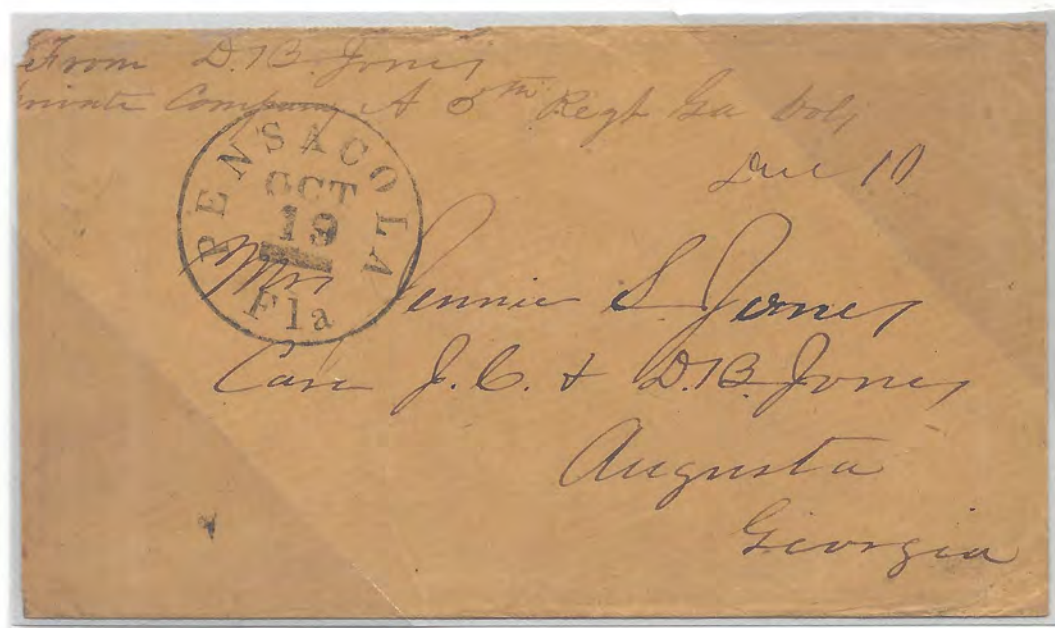 From D.B. Jones
Private Company A 5th Regt Ga Vols
Due 10
PENSACOLA
OCT
19
Fla
Mrs Jennie S. Jones
Care J.C. & D.B. Jones
Augusta
Georgia